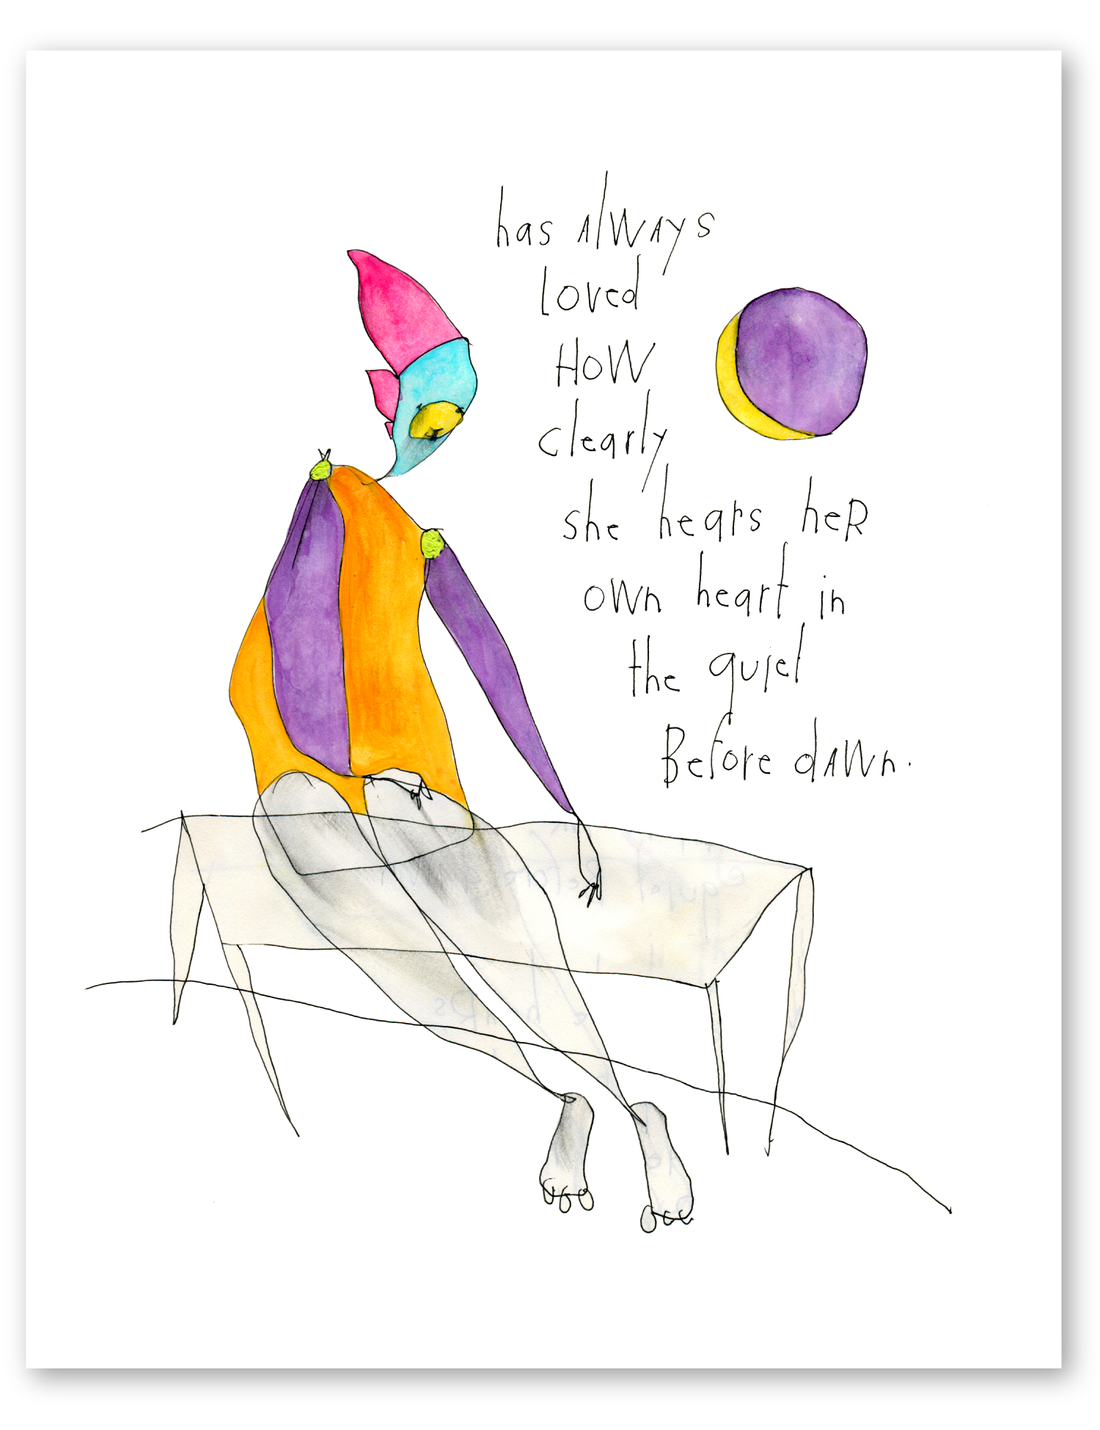 has AlwAys
loved
HoW
clearly
she hears heR
own heart in
the quiet
Before dAWn.